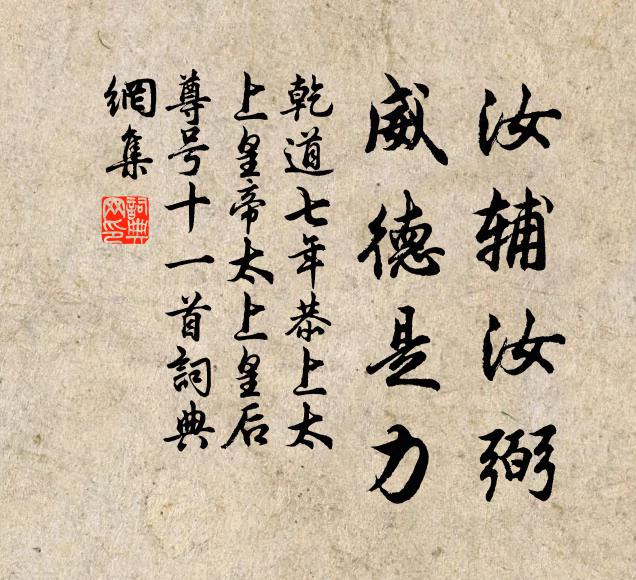 汝辅汝弼
威德是力
乾道七年恭上太
上皇帝太上皇后
尊号十一首詞典
網集
詞典网印